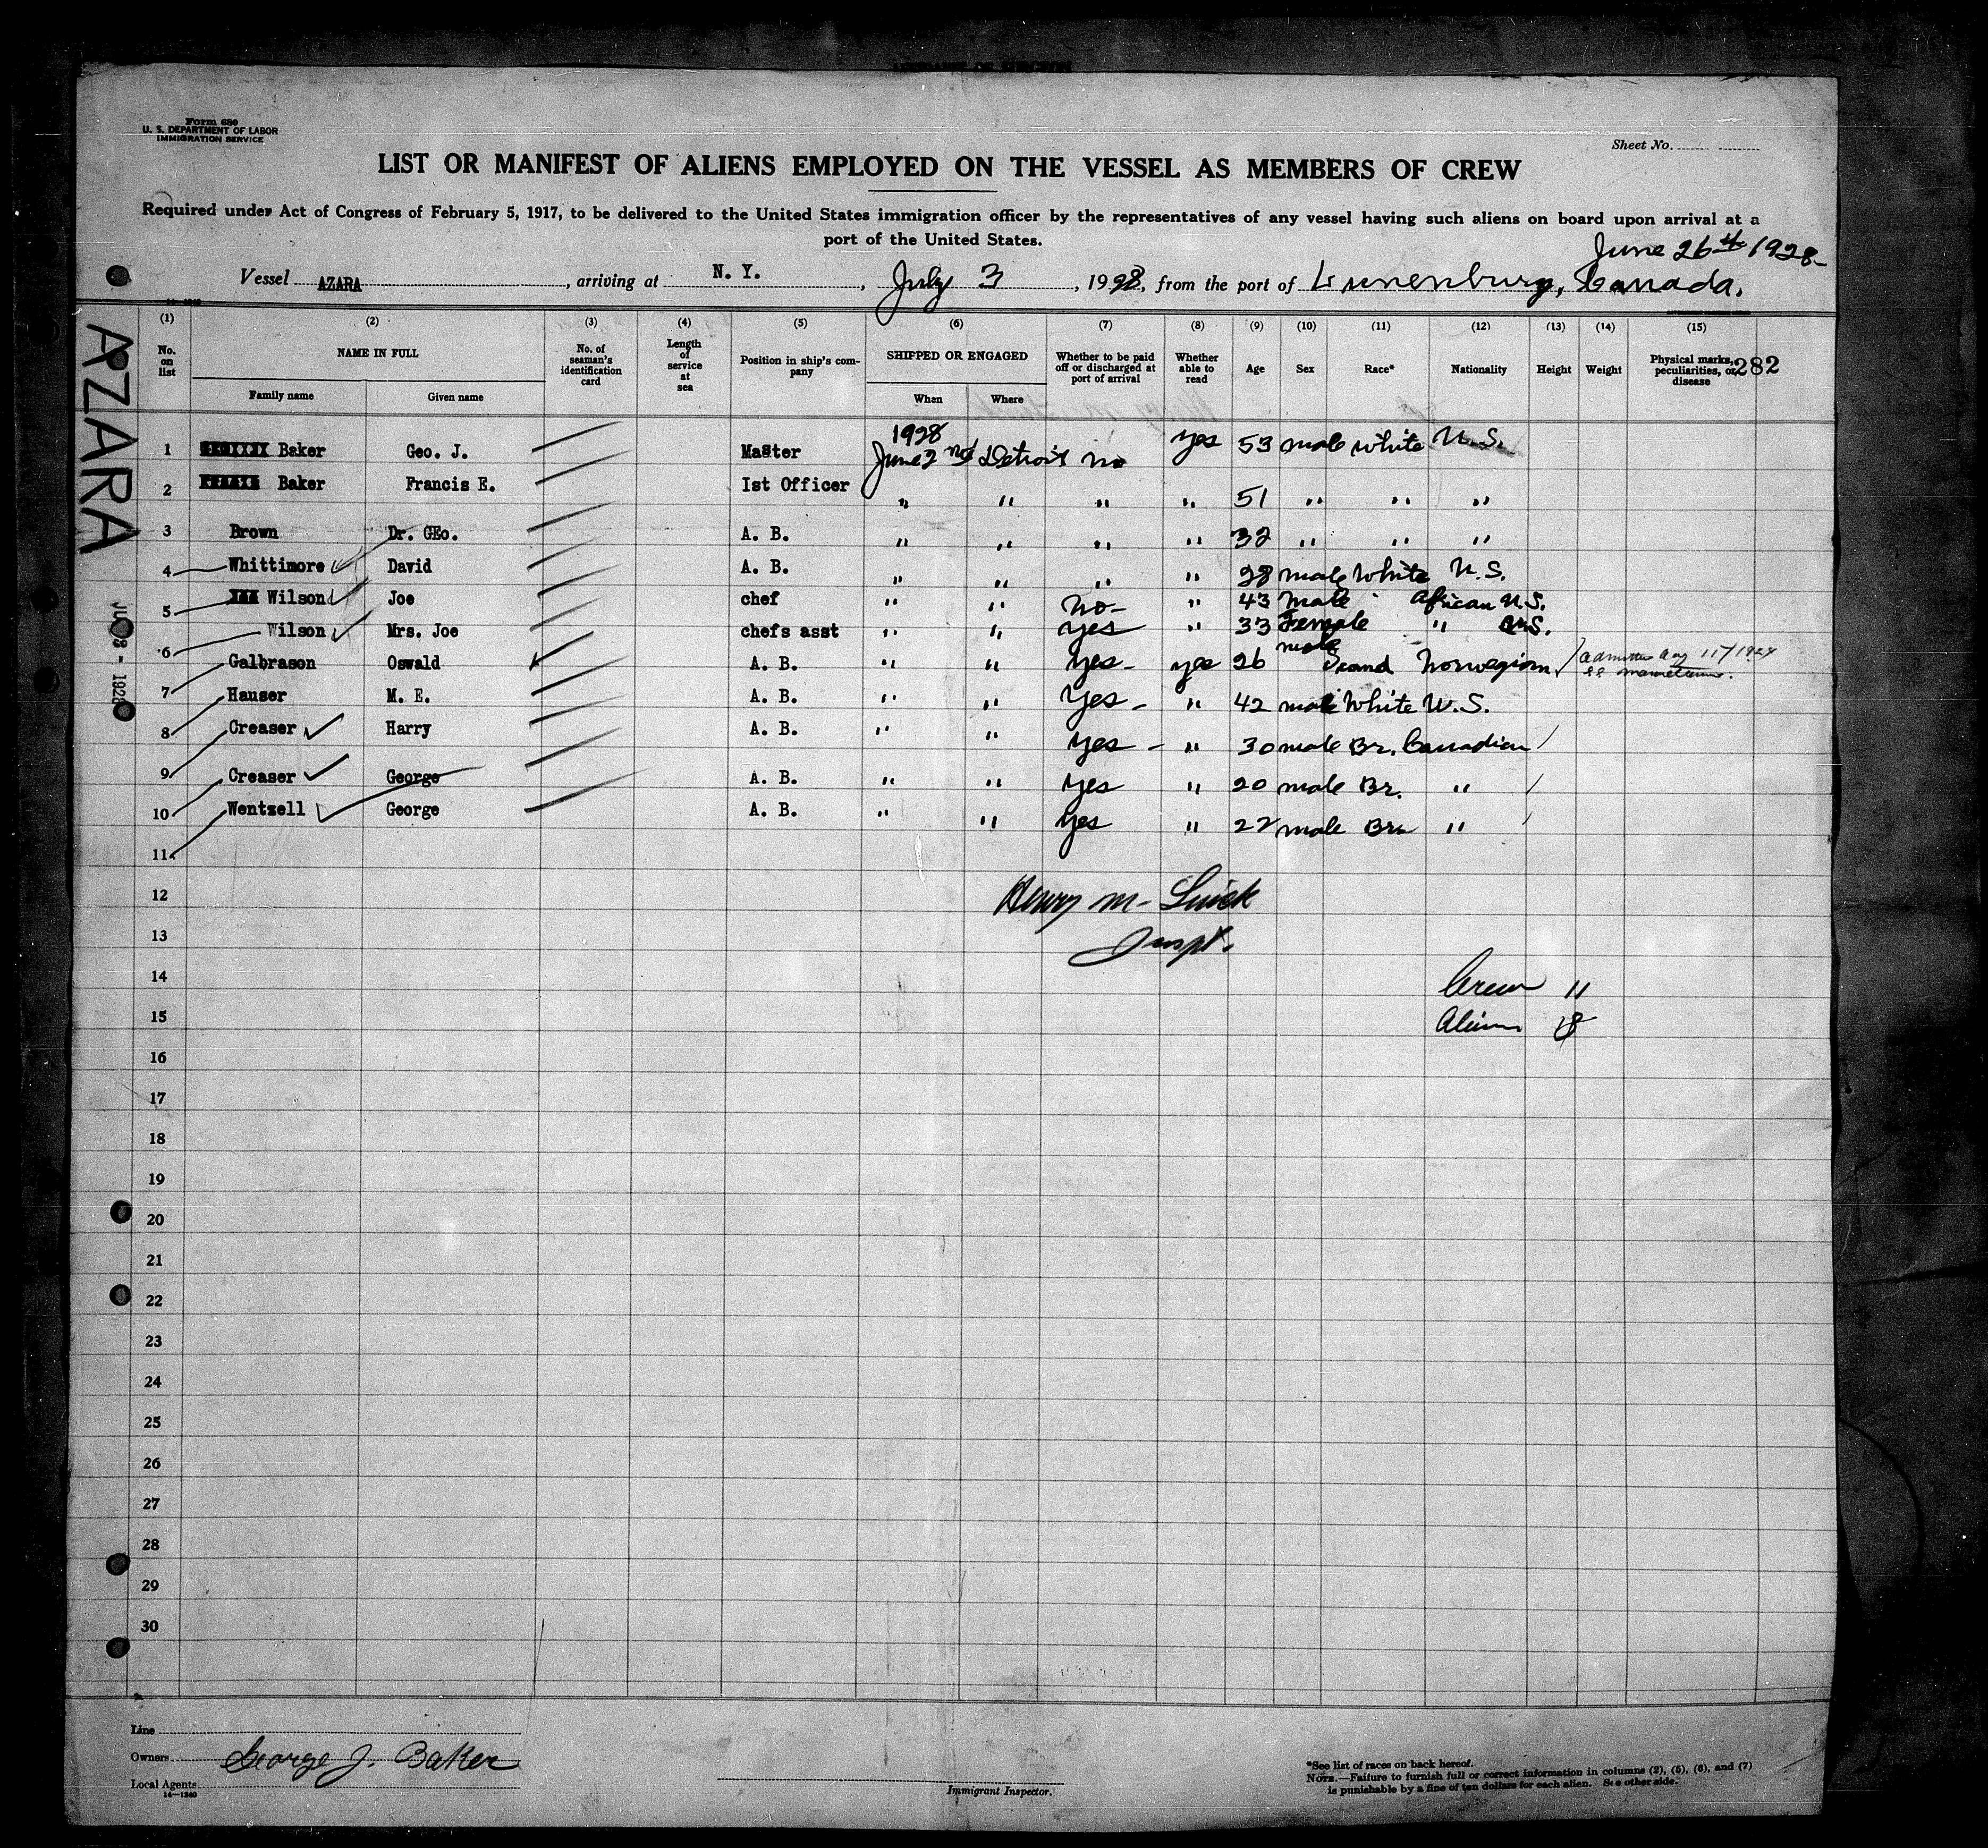 Form 680
U. S. DEPARTMENT OF LABOR
IMMIGRATION SERVICE
Sheet No.
LIST OR MANIFEST OF ALIENS EMPLOYED ON THE VESSEL AS MEMBERS OF CREW
Required under Act of Congress of February 5, 1917, to be delivered to the United States immigration officer by the representatives of any vessel having such aliens on board upon arrival at a
port of the United States.
June 26th 1928
Vessel AZARA, arriving at N. Y., July 3, 1928, from the port of Lunenburg, Canada.
AZARA
(1) (2) (3) (4) (5) (6) (7) (8) (9) (10) (11) (12) (13) (14) (15)
No. on list NAME IN FULL No. of seaman's identification card Length of service at sea Position in ship's company SHIPPED OR ENGAGED Whether to be paid off or discharged at port of arrival Whether able to read Age Sex Race* Nationality Height Weight Physical marks, peculiarities, or disease 282
Family name Given name When Where
1928
1 Baker Geo. J. Master June 2nd Detroit no yes 53 male white U.S.
2 Baker Francis E. Ist Officer " " " " 51 " " "
3 Brown Dr. GEo. A. B. " " " " 32 " " "
4 Whittimore David A. B. " " " " 28 male White U.S.
5 Wilson Joe chef " " No- " 43 Male African U.S.
6 Wilson Mrs. Joe chefs asst " " yes " 33 Female " U.S.
7 Galbrason Oswald A. B. " " yes- yes 26 male Scand Norwegian admitted Aug 11/1924
8 Hauser M. E. A. B. " " Yes- " 42 male White U.S.
9 Creaser Harry A. B. " " yes- " 30 male Br. Canadian
10 Creaser George A. B. " " yes " 20 male Br. "
11 Wentzell George A. B. " " yes " 22 male Br. "
JUL 3 - 1928
12
Henry M.
13
Inspt.
14
Crew 11
15
Aliens
16
17
18
19
20
21
22
23
24
25
26
27
28
29
30
Line
Owners George J. Baker
Local Agents
14—1240
Immigrant Inspector.
*See list of races on back hereof.
NOTE.—Failure to furnish full or correct information in columns (2), (5), (6), and (7)
is punishable by a fine of ten dollars for each alien. See other side.